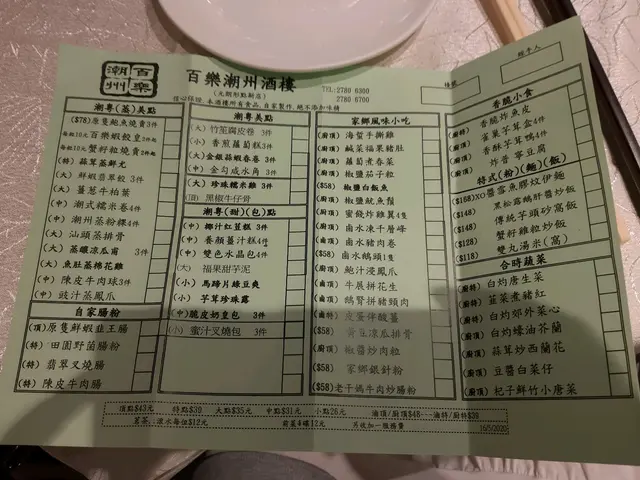 百樂
潮州
百樂潮州酒樓
(元朗形點新店)
TEL:2780 6300
2780 6700
信心保證 本酒樓所有食品, 自家製作, 絕不添加味精
經手人
潮粵(蒸)美點
($78)原隻鮑魚燒賣3件
每粒10元百樂蝦餃皇
每粒10元蟹籽粒燒賣
(特) 蒜茸蒸鮮尤
(大) 鮮蝦翡翠餃 3件
(大) 薑葱牛柏葉
(中) 潮式糯米卷4件
(中) 潮州蒸粉粿4件
(大) 汕頭蒸排骨
(大) 蒸釀涼瓜甫 3件
(大) 魚肚蒸棉花雞
(中) 陳皮牛肉球3件
(中) 豉汁蒸鳳爪
自家腸粉
(頂) 原隻鮮蝦韭王腸
(特) 田園野菌腸粉
(特) 翡翠叉燒腸
(特) 陳皮牛肉腸
潮粵美點
(大) 竹笙腐皮卷 3件
(小) 香煎蘿蔔糕3件
(大) 金銀蒜蝦春卷 3件
(中) 金勾咸水角 3件
(大) 珍珠糯米雞 3件
(頂) 黑椒牛仔骨
潮粵(甜)(包)點
(中) 椰汁紅荳糕 3件
(中) 養顏薑汁糕4件
(中) 雙色水晶包4件
(大) 福果甜芋泥
(小) 馬蹄片綠豆爽
(小) 芋茸珍珠露
(中) 脆皮奶皇包 3件
(小) 蜜汁叉燒包 3件
家鄉風味小吃
(廚頂) 海蜇手撕雞
(廚頂) 鹹菜福果豬肚
(廚頂) 蘿蔔煮春菜
(廚頂) 椒鹽茄子粒
($58) 椒鹽白飯魚
(廚頂) 椒鹽魷魚鬚
(廚頂) 蜜餞炸雞翼4隻
(廚頂) 鹵水凍千層峰
(廚頂) 鹵水豬肉卷
($58) 鹵水鵝頭1隻
(廚頂) 鮑汁浸鳳爪
(廚頂) 牛展拼花生
(廚頂) 鵝腎拼豬頸肉
(廚頂) 皮蛋伴酸薑
($58) 黃豆涼瓜排骨
(廚頂) 椒醬炒肉粒
($58) 家鄉銀針粉
($58)老干媽牛肉炒腸粉
香脆小食
(廚特) 香脆炸魚皮
(廚特) 雀巢芋茸盒4件
(廚特) 香酥芋茸鴨4件
炸普寧豆腐
特式(粉)(麵)(飯)
($168)XO醬雪魚膠炆伊麵
($168) 黑松露鵝肝醬炒飯
($148) 傳統芋頭砂窩飯
($128) 蟹籽雞粒炒飯
($118) 雙丸湯米(窩)
合時蔬菜
(廚特) 白灼唐生菜
(廚特) 韮菜煮豬紅
(廚頂) 白灼郊外菜心
(廚頂) 白灼蠔油芥蘭
(廚頂) 蒜茸炒西蘭花
(廚頂) 豆醬白菜仔
(廚頂) 杞子鮮竹小唐菜
頂點$43元 特點$39 大點$35元 中點$31元 小點26元 滷頂/廚頂$48---滷特/廚特$39
茗茶、涼水每位$12元 前菜4碟12元 另收加一服務費
15/5/2020